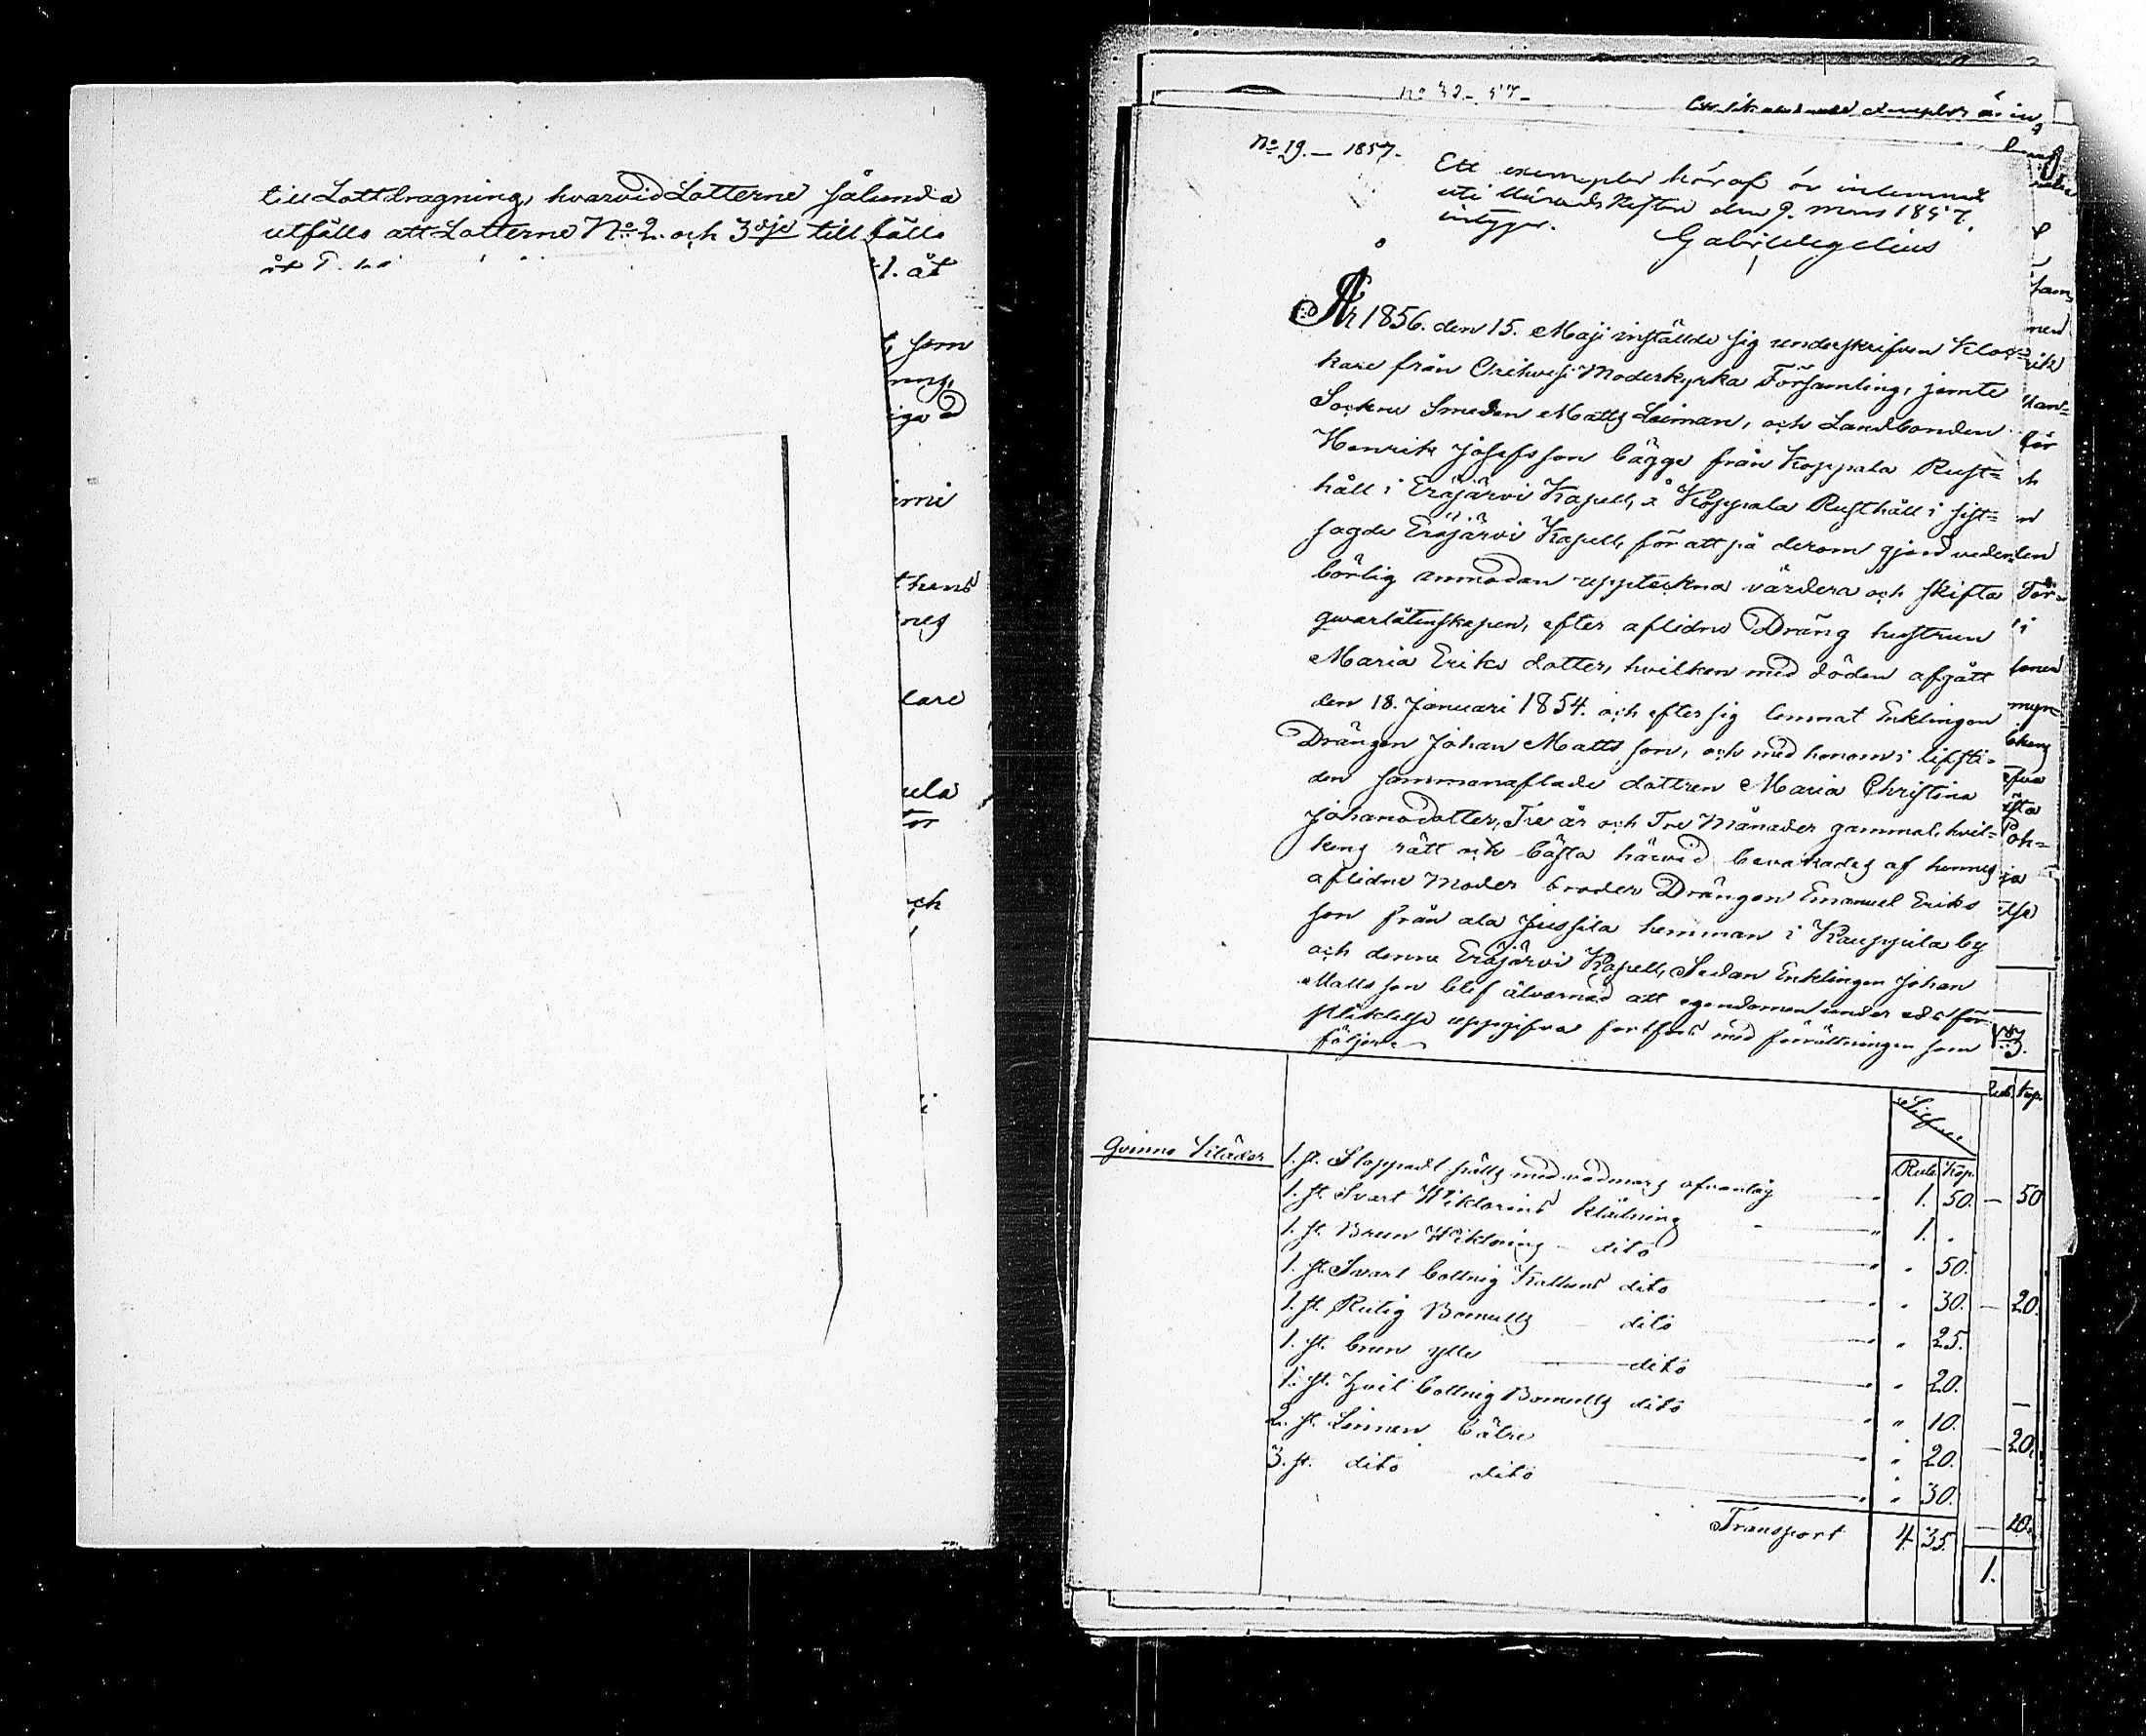 till Lottdragning, hvarvid Lotterne sålunda
utfölls att Lotterne No 2. och 3dje till fälls
1. åt
som
iga
thens
lare
ula
och
No 32. 57.
exemplar är in
No 19. — 1857.
Ett exemplar häraf är inlemnad
uti Häradskistan den 9. Mars 1857.
intygar.
Gabr Wegelius
År 1856. den 15. Maji inställde sig underskrifven Kloc-
kare från Orihvesi Moderkyrka Församling, jemte
Sockne Smeden Matts Leiman, och Landbonden
Henrik Josefsson bägge från Koppala Rust-
håll i Eräjärvi Kapell, å Koppala Rusthåll i sist-
sagde Eräjärvi Kapell, för att på derom gjord veder-
börlig anmodan uppteckna värdera och skifta
qvarlåtenskapen, efter aflidne Dräng hustrun
Maria Eriks dotter, hvilken med döden afgått
den 18. Januari 1854. och efter sig lemnat Enklingen
Drängen Johan Matts son, och med honom i lifsti-
den sammanaflade dottren Maria Christina
Johansdotter, Tre år och Tre Månader gammal, hvil-
kens rätt och bästa härvid bevakades af hennes
aflidne Moders broder Drängen Emanuel Eriks
son från ala Jussila hemman i Kauppila by
och denne Eräjärvi Kapell, Sedan Enklingen Johan
Matts son blef alvarnad att egendomen under eds för-
pliktelse uppgifva fortfors med förrättningen som
följer
Silfver
Rub. Kop.
Qvinno Kläder
1. st. Stoppadt fälls med vadmars ofvanlag 1. 50.
1. st. Svart Wiktorins Klädning 1. .
1. st. Brun Wiktorins dito " 50.
1. st. Svart bottnig Kattuns dito " 30.
1. st. Rutig Bomulls dito " 25.
1. st. brun ylle dito " 20.
1. st. hvit bottnig Bomulls dito " 10.
2. st. Linnen bättre " 20.
3. st. dito dito " 30.
Transport 4. 35.
Rub. Kop.
50
20.
20.
20.
1.